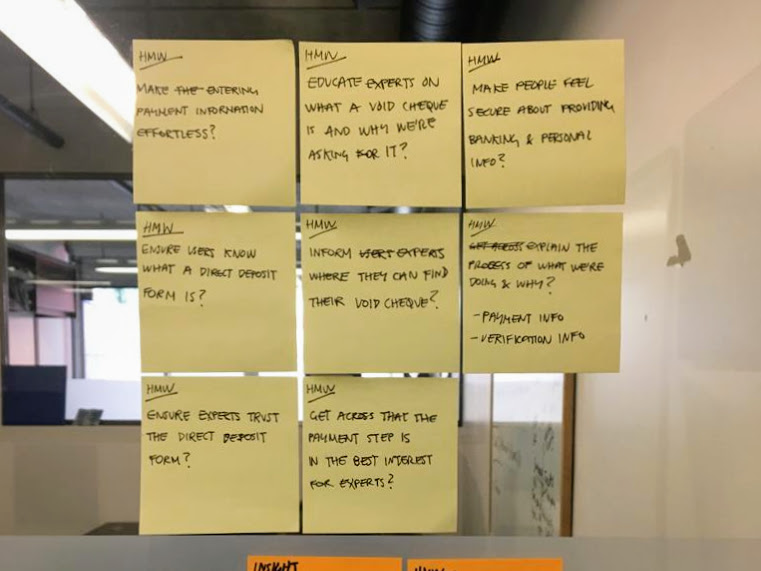 HMW
MAKE THE ENTERING
PAYMENT INFORMATION
EFFORTLESS?
HMW
EDUCATE EXPERTS ON
WHAT A VOID CHEQUE
IS AND WHY WE'RE
ASKING FOR IT?
HMW
MAKE PEOPLE FEEL
SECURE ABOUT PROVIDING
BANKING & PERSONAL
INFO?
HMW
ENSURE USERS KNOW
WHAT A DIRECT DEPOSIT
FORM IS?
HMW
INFORM USERS EXPERTS
WHERE THEY CAN FIND
THEIR VOID CHEQUE?
HMW
GET ACROSS EXPLAIN THE
PROCESS OF WHAT WE'RE
DOING & WHY?
- PAYMENT INFO
- VERIFICATION INFO
HMW
ENSURE EXPERTS TRUST
THE DIRECT DEPOSIT
FORM?
HMW
GET ACROSS THAT THE
PAYMENT STEP IS
IN THE BEST INTEREST
FOR EXPERTS?
INSIGHT
HMW